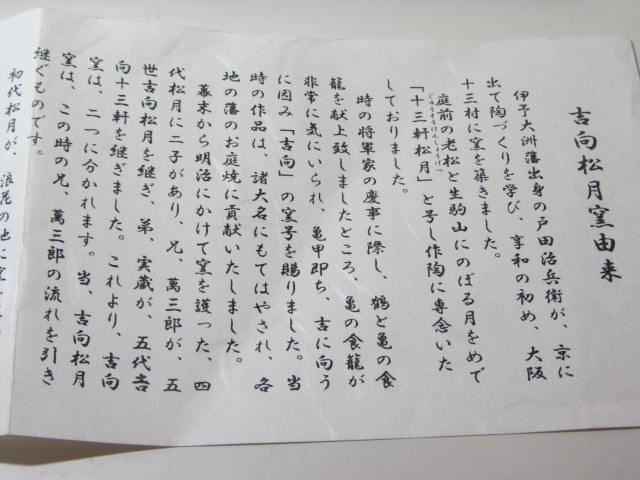 吉向松月窯由来
伊予大洲藩出身の戸田治兵衛が、京に
出て陶づくりを学び、享和の初め、大阪
十三村に窯を築きました。
庭前の老松と生駒山にのぼる月をめで
「十三軒松月」と号し作陶に専念いた
じゅうそうけんしょうげつ
しておりました。
時の将軍家の慶事に際し、鶴と亀の食
籠を献上致しましたところ、亀の食籠が
非常に気にいられ、亀甲即ち、吉に向う
に因み「吉向」の窯号を賜りました。当
時の作品は、諸大名にもてはやされ、各
地の藩のお庭焼に貢献いたしました。
幕末から明治にかけて窯を護った、四
代松月に二子があり、兄、萬三郎が、五
世吉向松月を継ぎ、弟、実蔵が、五代吉
向十三軒を継ぎました。これより、吉向
窯は、二つに分かれます。当、吉向松月
窯は、この時の兄、萬三郎の流れを引き
継ぐものです。
初代松月が、浪花の地に窯